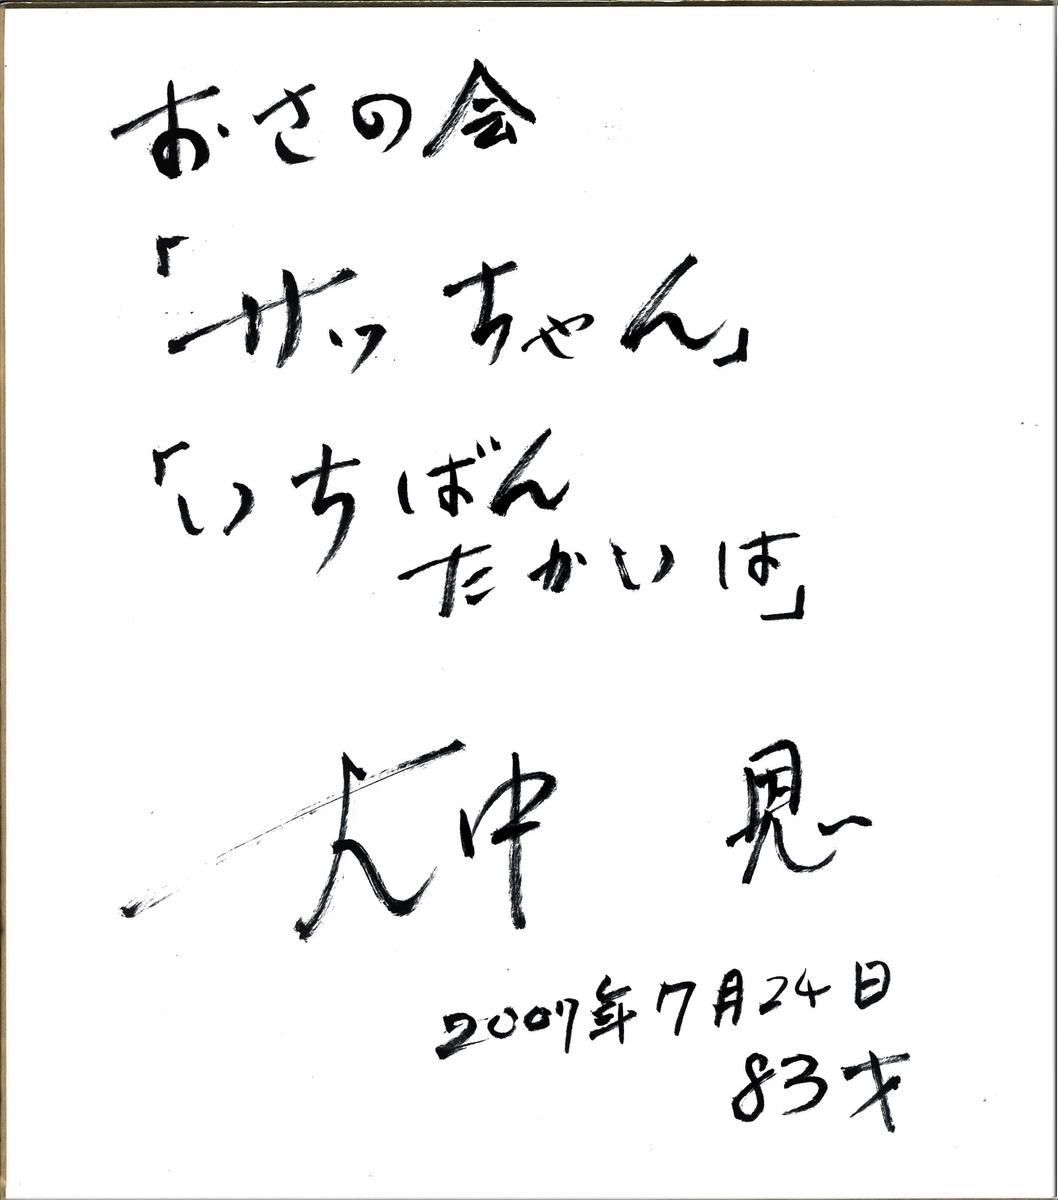 おさの会
「サッちゃん」
「いちばん
たかいは」
大中 恩
2007年7月24日
83才